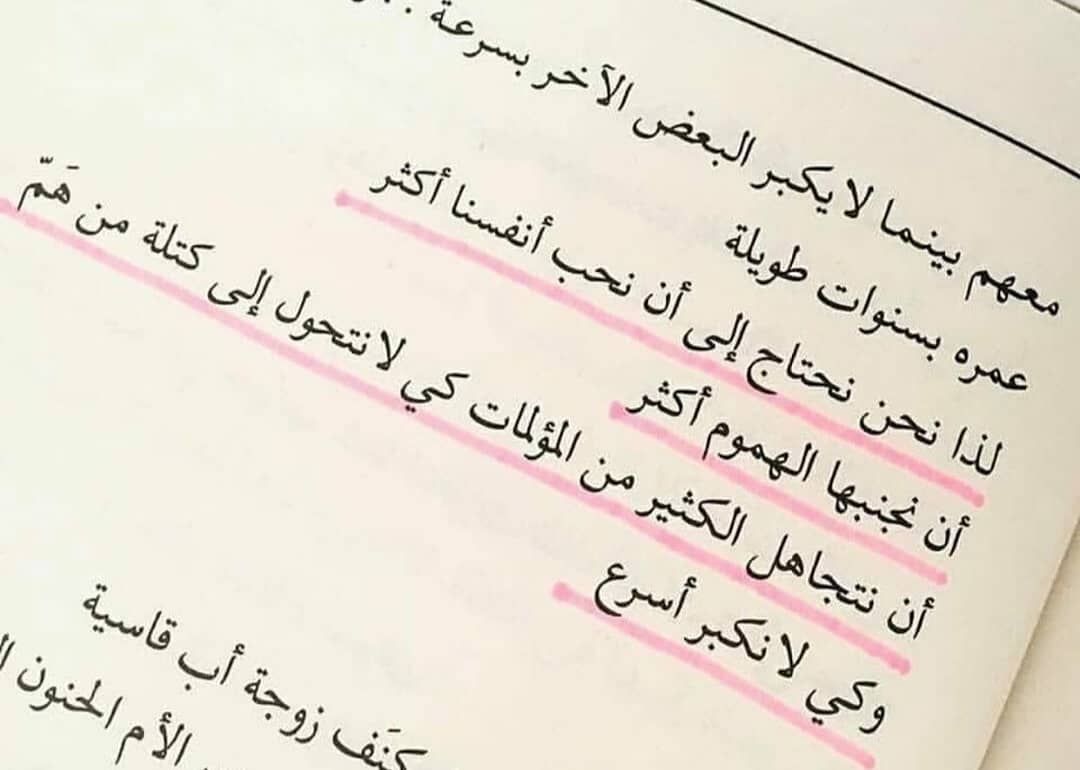 معهم بينما لا يكبر البعض الآخر بسرعة
عمره بسنوات طويلة
لذا نحن نحتاج إلى أن نحب أنفسنا أكثر
أن نجنبها الهموم أكثر
أن نتجاهل الكثير من المؤلمات كي لا نتحول إلى كتلة من هَمّ
وكي لا نكبر أسرع
كنَف زوجة أب قاسية
الأم الحنون